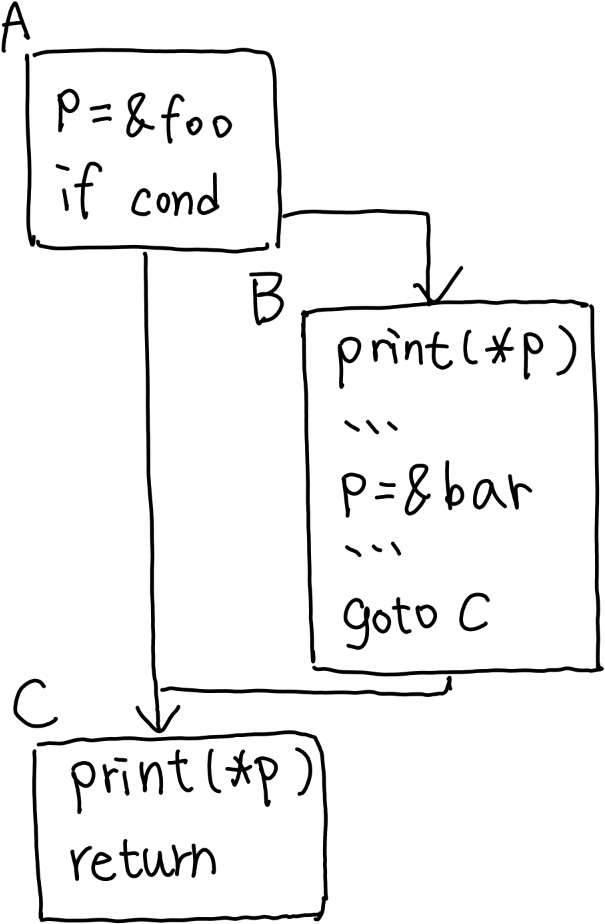 A
p=&foo
if cond
B
print(*p)
...
p=&bar
...
goto C
C
print(*p)
return